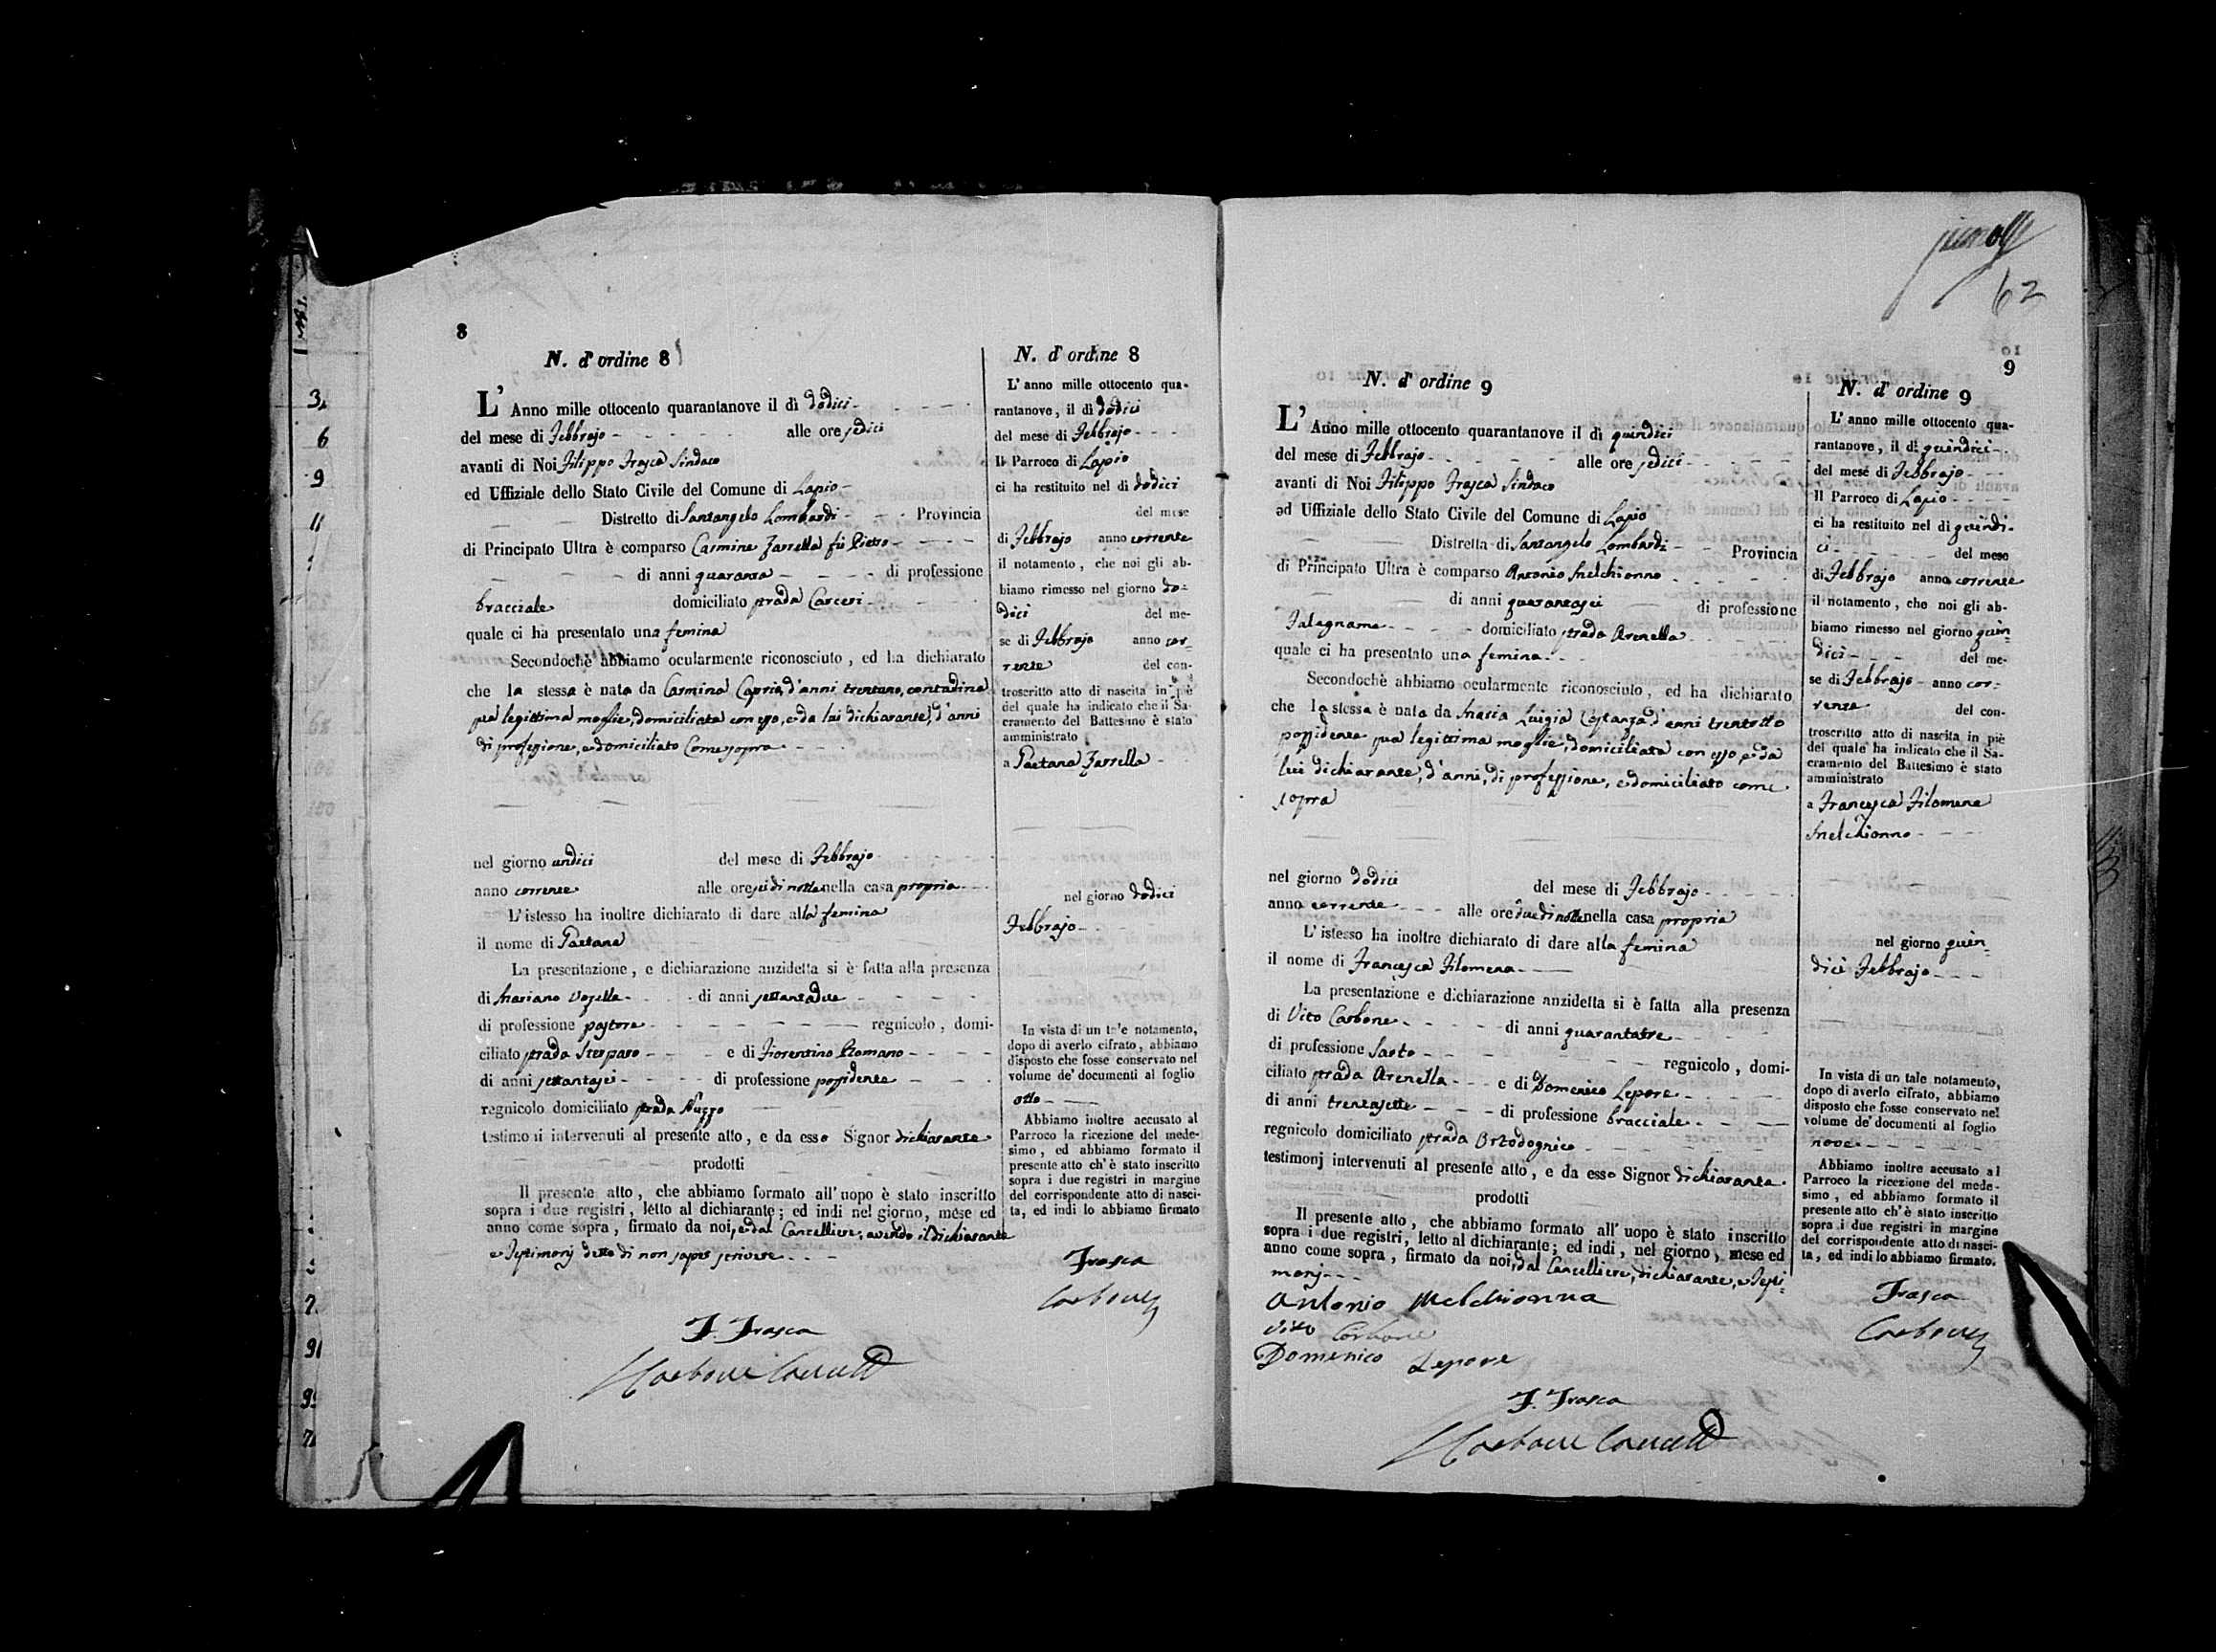 8
N. d'ordine 8
L' Anno mille ottocento quarantanove il dì dodici
del mese di Febbrajo alle ore sedici
avanti di Noi Filippo Frasca Sindaco
ed Uffiziale dello Stato Civile del Comune di Lapio
Distretto di Santangelo Lombardi Provincia
di Principato Ultra è comparso Carmine Zarrella fù Pietro
di anni quaranta di professione
bracciale domiciliato strada Carceri
quale ci ha presentato una femina
Secondochè abbiamo ocularmente riconosciuto, ed ha dichiarato
che la stessa è nata da Carmina Caprio, d'anni trentuno, contadina
sua legittima moglie, domiciliata con esso, e da lui dichiarante, d'anni
di professione, e domiciliato come sopra
nel giorno undici del mese di Febbrajo
anno corrente alle ore sei di notte nella casa propria
L'istesso ha inoltre dichiarato di dare alla femina
il nome di Gaetana
La presentazione, e dichiarazione anzidetta si è fatta alla presenza
di Mariano Vozella di anni settantadue
di professione pastore regnicolo, domi-
ciliato strada Sterparo e di Fiorentino Romano
di anni settantasei di professione possidente
regnicolo domiciliato strada Nuzzo
testimonii intervenuti al presente atto, e da esso Signor dichiarante
prodotti
Il presente atto, che abbiamo formato all'uopo è stato inscritto
sopra i due registri, letto al dichiarante; ed indi nel giorno, mese ed
anno come sopra, firmato da noi, e dal Cancelliere, avendo il Dichiarante
e Testimonj detto di non saper scrivere
F. Frasca
Carbone Cancell
N. d'ordine 8
L'anno mille ottocento qua-
rantanove, il dì dodici
del mese di Febbrajo
Il Parroco di Lapio
ci ha restituito nel dì dodici
del mese
di Febbrajo anno corrente
il notamento, che noi gli ab-
biamo rimesso nel giorno do-
dici del me-
se di Febbrajo anno cor-
rente del con-
troscritto atto di nascita in piè
del quale ha indicato che il Sa-
cramento del Battesimo è stato
amministrato
a Gaetana Zarrella
nel giorno dodici
Febbrajo
In vista di un tale notamento,
dopo di averlo cifrato, abbiamo
disposto che fosse conservato nel
volume de' documenti al foglio
otto
Abbiamo inoltre accusato al
Parroco la ricezione del mede-
simo, ed abbiamo formato il
presente atto ch'è stato inscritto
sopra i due registri in margine
del corrispondente atto di nasci-
ta, ed indi lo abbiamo firmato
Frasca
Carbone
62
9
N. d'ordine 9
L' Anno mille ottocento quarantanove il dì quindici
del mese di Febbrajo alle ore sedici
avanti di Noi Filippo Frasca Sindaco
ed Uffiziale dello Stato Civile del Comune di Lapio
Distretto di Santangelo Lombardi Provincia
di Principato Ultra è comparso Antonio Melchionno
di anni quarantasei di professione
Falegname domiciliato strada Arenella
quale ci ha presentato una femina
Secondochè abbiamo ocularmente riconosciuto, ed ha dichiarato
che la stessa è nata da Maria Luigia Costanza d'anni trentotto
possidente sua legittima moglie, domiciliata con esso, e da
lui dichiarante, d'anni, di professione, e domiciliato come
sopra
nel giorno dodici del mese di Febbrajo
anno corrente alle ore due di notte nella casa propria
L'istesso ha inoltre dichiarato di dare alla femina
il nome di Francesca Filomena
La presentazione e dichiarazione anzidetta si è fatta alla presenza
di Vito Carbone di anni quarantatre
di professione Sarto regnicolo, domi-
ciliato strada Arenella e di Domenico Lepore
di anni trentasette di professione bracciale
regnicolo domiciliato strada Ortodognico
testimonj intervenuti al presente atto, e da esso Signor dichiarante
prodotti
Il presente atto, che abbiamo formato all'uopo è stato inscritto
sopra i due registri, letto al dichiarante; ed indi, nel giorno, mese ed
anno come sopra, firmato da noi, dal Cancelliere, dichiarante, e Testi-
monj
Antonio Melchionna
Vito Carbone
Domenico Lepore
F. Frasca
Carbone Cancell
N. d'ordine 9
L'anno mille ottocento qua-
rantanove, il dì quindici
del mese di Febbrajo
Il Parroco di Lapio
ci ha restituito nel dì quindi-
ci del mese
di Febbrajo anno corrente
il notamento, che noi gli ab-
biamo rimesso nel giorno quin-
dici del me-
se di Febbrajo anno cor-
rente del con-
troscritto atto di nascita in piè
del quale ha indicato che il Sa-
cramento del Battesimo è stato
amministrato
a Francesca Filomena
Melchionno
nel giorno quin-
dici Febbrajo
In vista di un tale notamento,
dopo di averlo cifrato, abbiamo
disposto che fosse conservato nel
volume de' documenti al foglio
nove
Abbiamo inoltre accusato al
Parroco la ricezione del mede-
simo, ed abbiamo formato il
presente atto ch'è stato inscritto
sopra i due registri in margine
del corrispondente atto di nasci-
ta, ed indi lo abbiamo firmato.
Frasca
Carbone